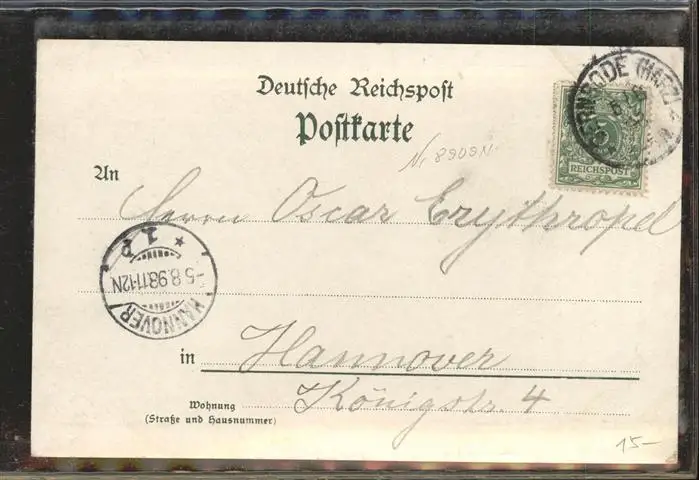 Deutsche Reichspost
Postkarte
RNRODE (HARZ)
REICHSPOST
Nr 8909N.
An
Herrn Oscar Erythropel
HANNOVER
1. P
-5.8.98.11-12N
in Hannover
Wohnung
(Straße und Hausnummer)
Königstr. 4
15-